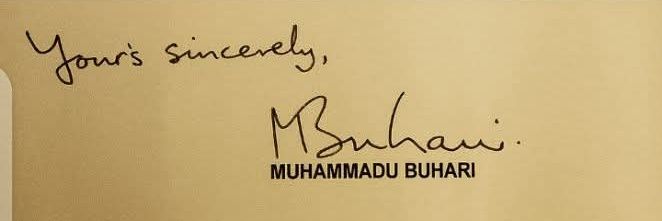 Your's sincerely,
MBuhari.
MUHAMMADU BUHARI